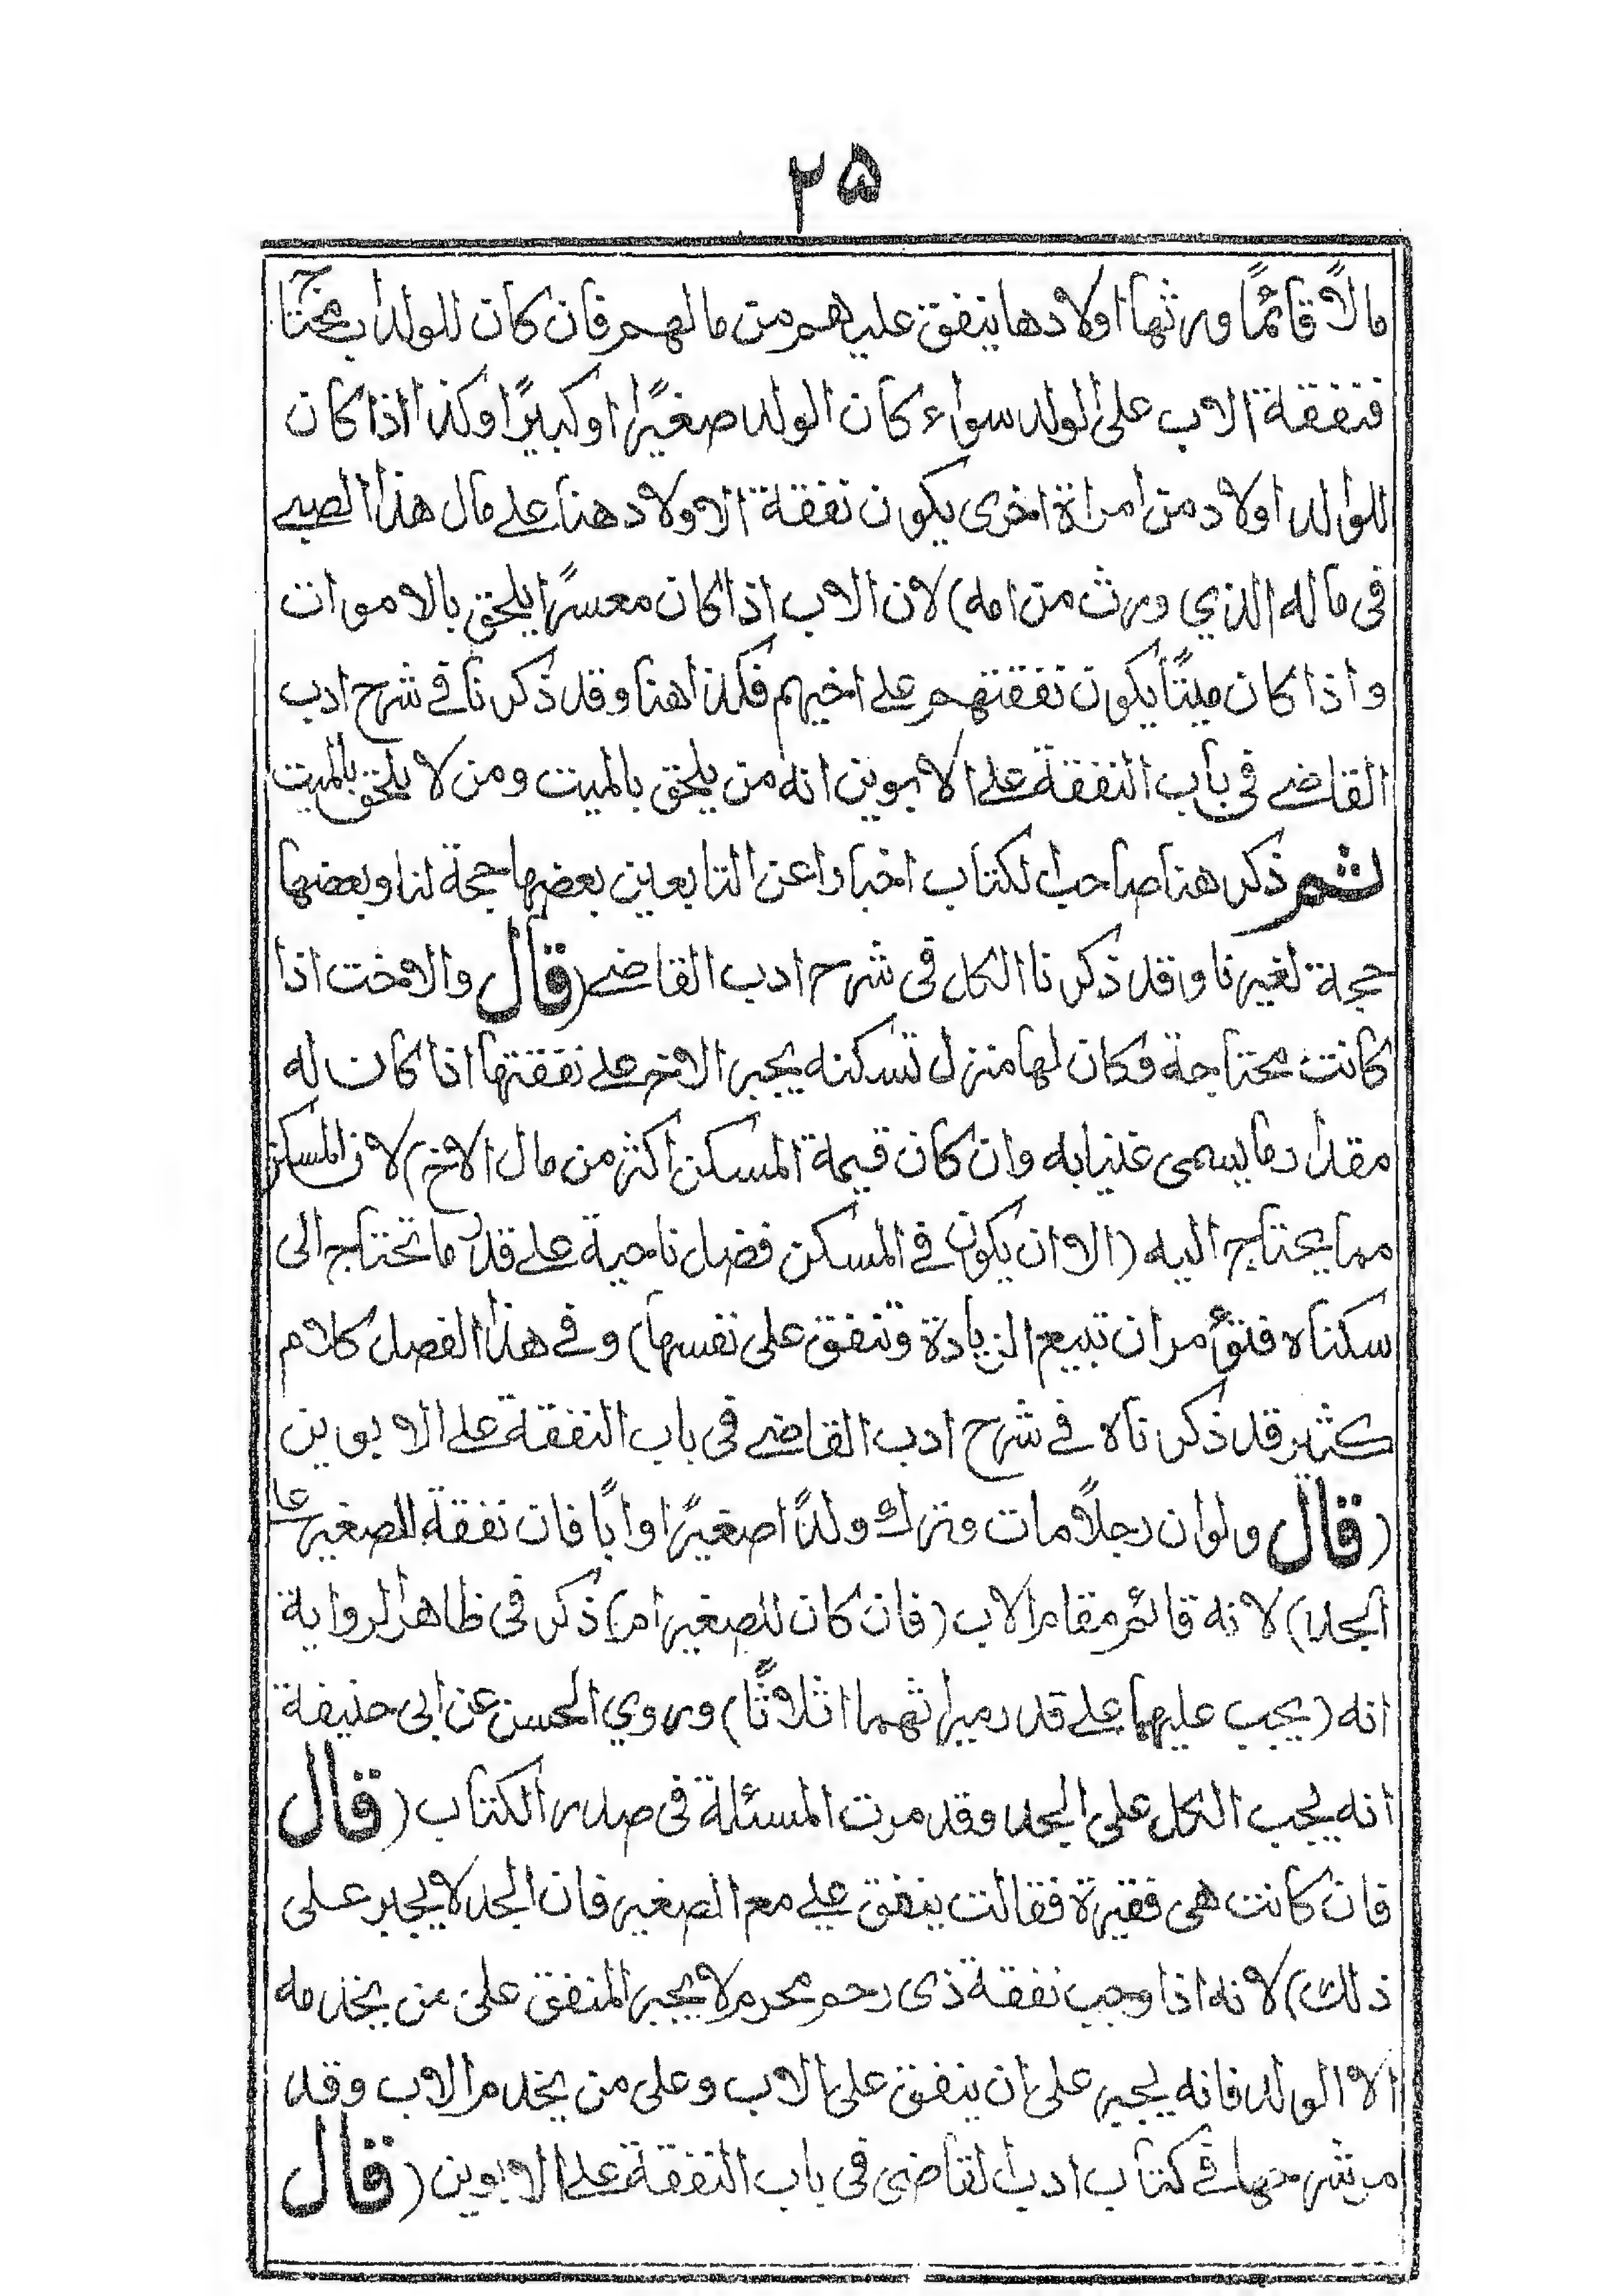 ۲۵
مالاً قائمًا ورثها اولادها ينفق عليهم من مالهم فان كان للولد اب محتاج
فنفقة الاب على الولد سواء كان الولد صغيرًا او كبيرًا وكذا اذا كان
للوالد اولاد من امراة اخرى يكون نفقة الاولاد هنا على مال هذا الصبي
فى ماله الذي ورث من امه) لان الاب اذا كان معسرًا يلحق بالاموات
واذا كان ميتًا يكون نفقتهم على اخيهم فكذا هنا وقد ذكرنا في شرح ادب
القاضي فى باب النفقة على الابوين انه من يلحق بالميت ومن لا يلحق بالميت
ثم ذكر هنا صاحب الكتاب اخبارا عن التابعين بعضها حجة لنا وبعضها
حجة لغيرنا وقد ذكرنا الكل فى شرح ادب القاضي (قال والاخت اذا
كانت محتاجة وكان لها منزل تسكنه يجبر الاخ على نفقتها اذا كان له
مقدار ما يسمى غنيا به وان كان قيمة المسكن اكثر من مال الاخ) لان المسكن
مما يحتاج اليه (الا ان يكون في المسكن فضل ناحية على قدر ما تحتاج الى
سكناه فتؤمر ان تبيع الزيادة وتنفق على نفسها) وفي هذا الفصل كلام
كثير قد ذكرناه في شرح ادب القاضي فى باب النفقة على الابوين
(قال ولو ان رجلاً مات وترك ولدًا صغيرًا وابًا فان نفقة الصغير على
الجد) لانه قائم مقام الاب (فان كان للصغير ام) ذكر فى ظاهر الرواية
انه (يجب عليهما على قدر ميراثهما اثلاثًا) وروي الحسن عن ابى حنيفة
انه يجب الكل على الجد وقد مرت المسئلة فى صدر الكتاب (قال
فان كانت هى فقيرة فقالت ينفق علي مع الصغير فان الجد لا يجبر على
ذلك) لانه اذا وجب نفقة ذى رحم محرم لا يجبر المنفق على من يخدمه
الا الولد فانه يجبر على ان ينفق على الاب وعلى من يخدم الاب وقد
مر شرحها في كتاب ادب القاضى فى باب النفقة على الابوين (قال